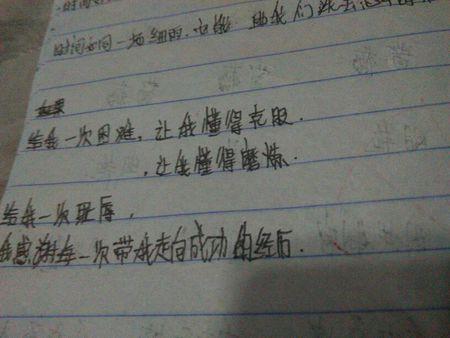 时间如同一场细雨,也能 助我们
如果
给我一次困难,让我懂得克服.
,让我懂得磨炼.
给我一次耻辱,
我感谢每一次带我走向成功的经历.